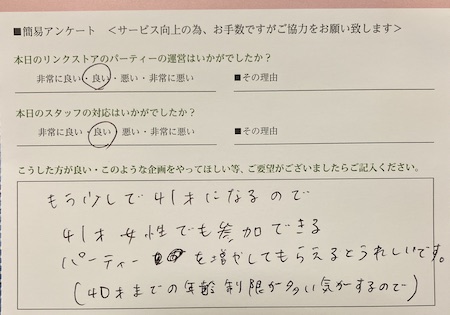 ■簡易アンケート ＜サービス向上の為、お手数ですがご協力をお願い致します＞
本日のリンクストアのパーティーの運営はいかがでしたか？
非常に良い・良い・悪い・非常に悪い ■その理由
本日のスタッフの対応はいかがでしたか？
非常に良い・良い・悪い・非常に悪い ■その理由
こうした方が良い・このような企画をやってほしい等、ご要望がございましたらご記入ください。
もう少しで41才になるので
41才女性でも参加できる
パーティーを増やしてもらえるとうれしいです。
(40才までの年齢制限が多い気がするので)